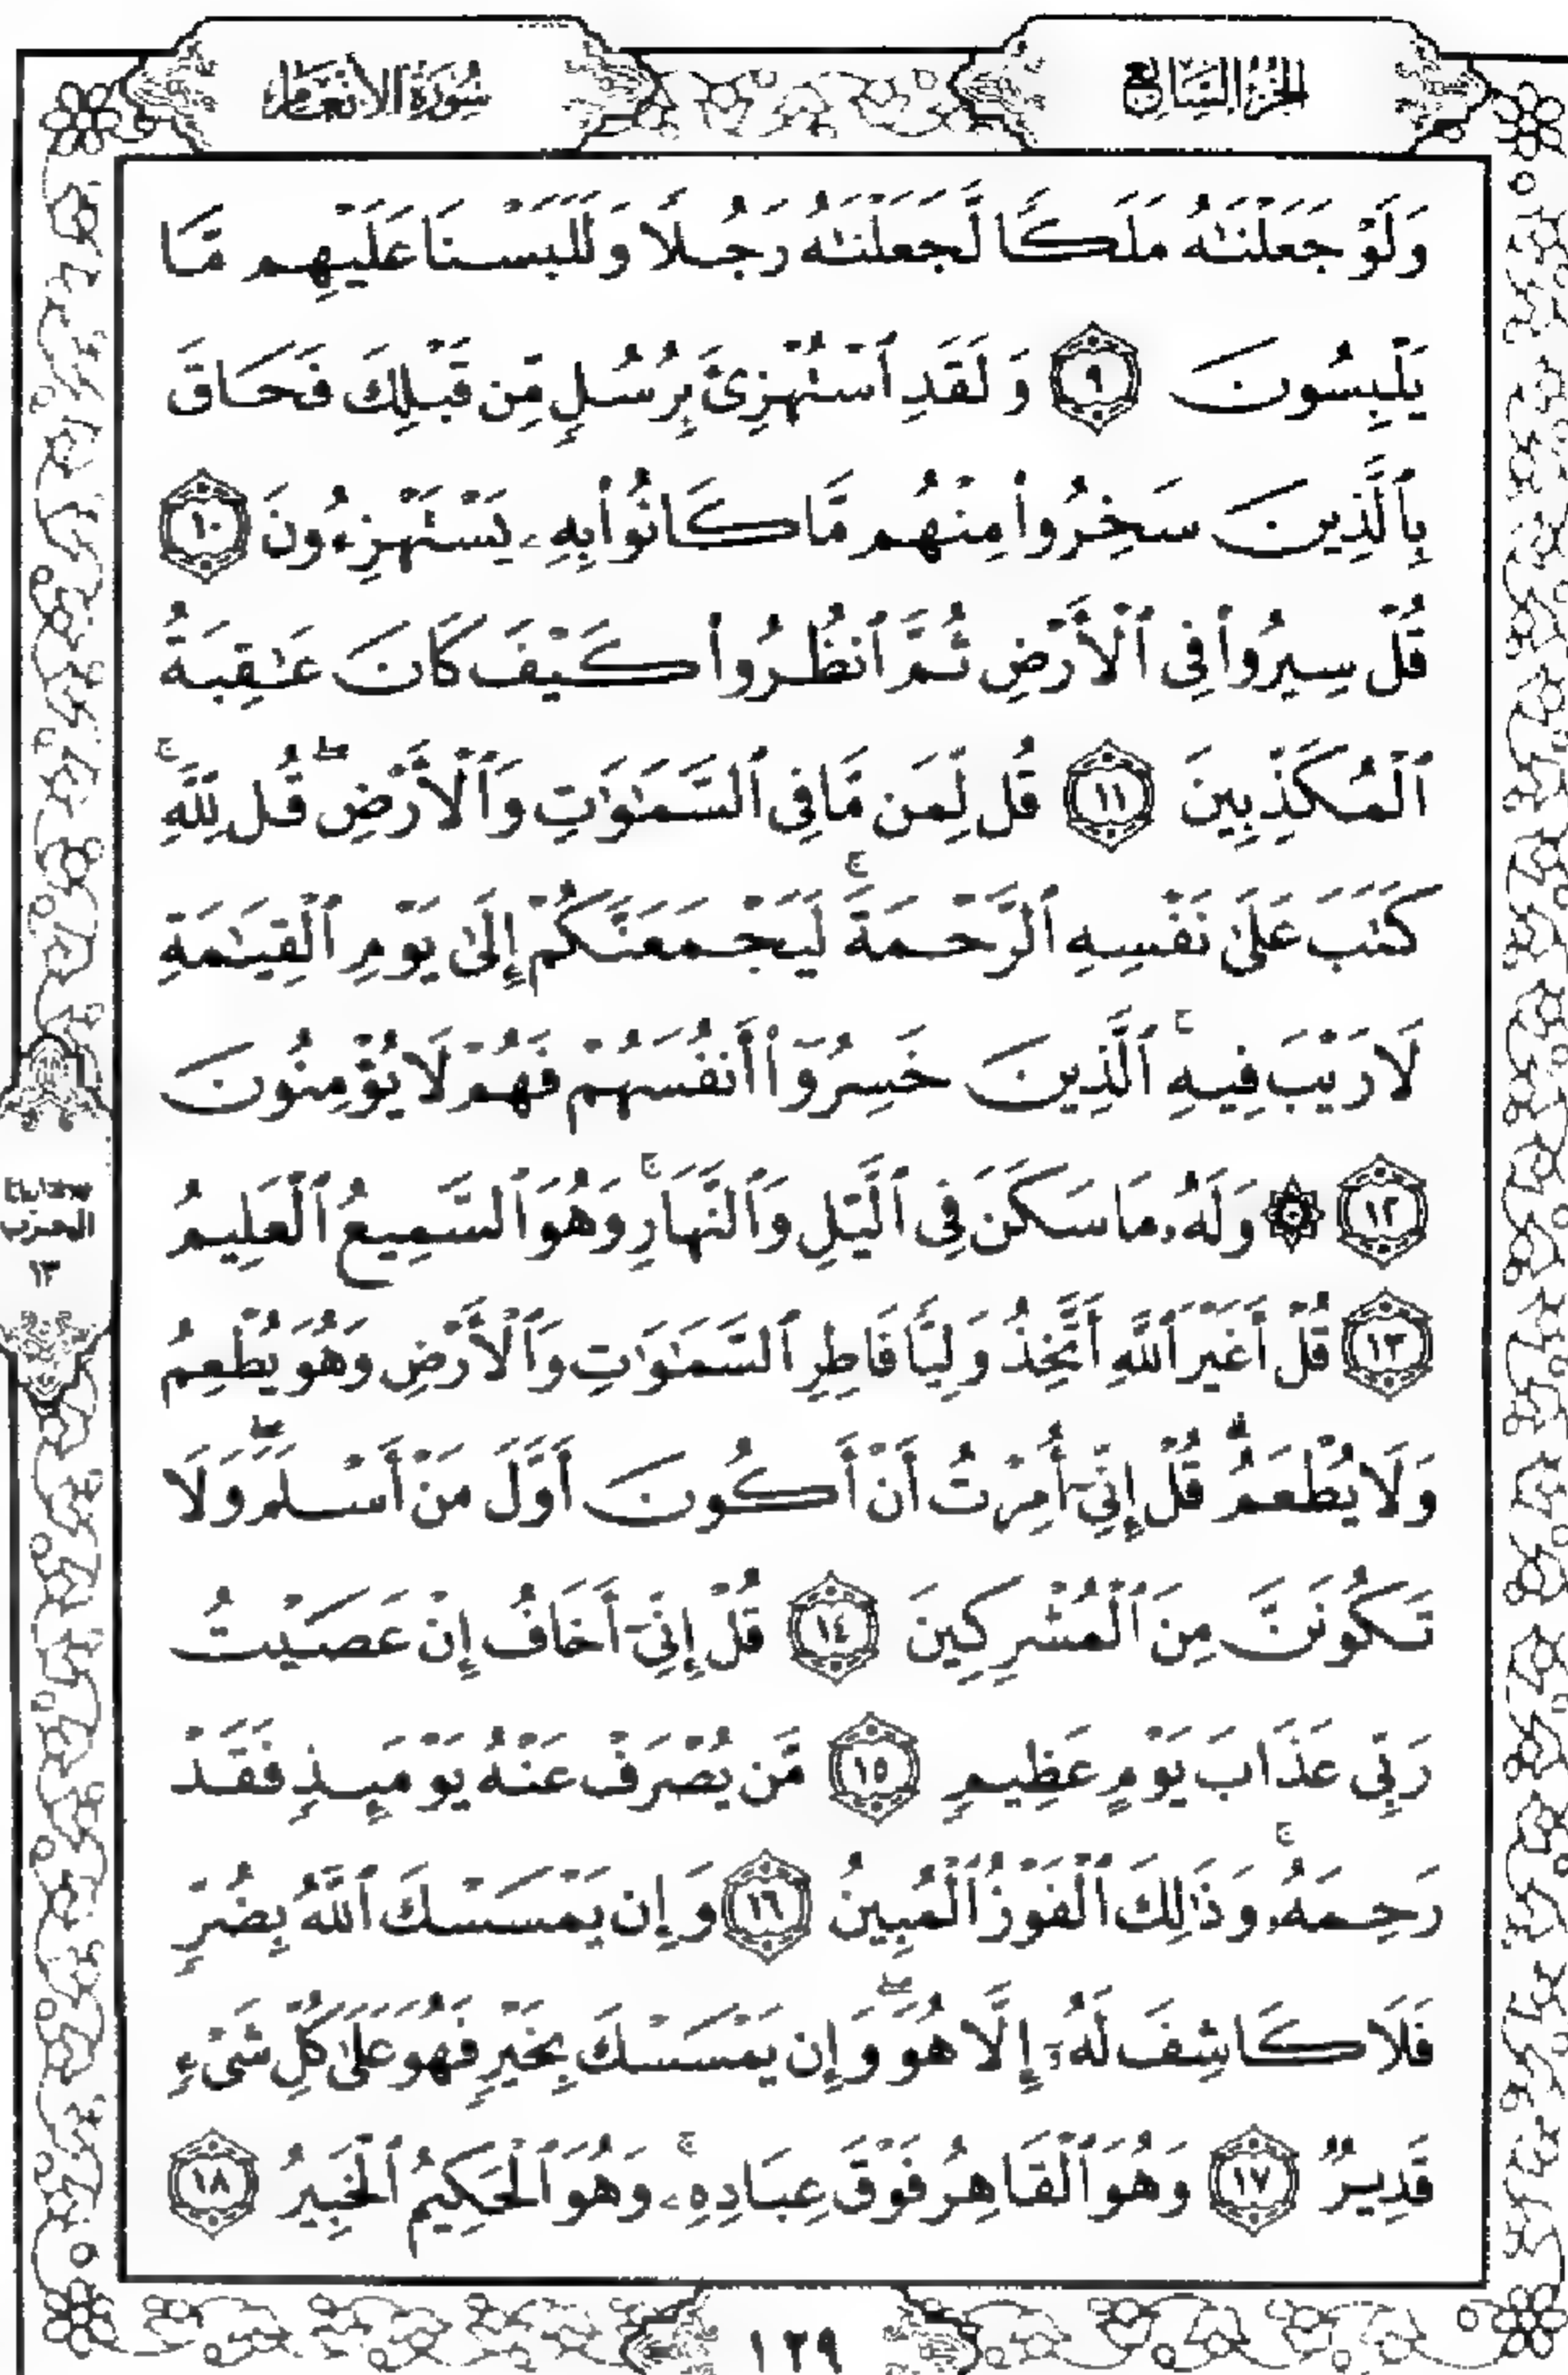 الجزء السابع
سورة الأنعام
وَلَوْ جَعَلْنَٰهُ مَلَكًا لَّجَعَلْنَٰهُ رَجُلًا وَلَلَبَسْنَا عَلَيْهِم مَّا
يَلْبِسُونَ ٩ وَلَقَدِ ٱسْتُهْزِئَ بِرُسُلٍ مِّن قَبْلِكَ فَحَاقَ
بِٱلَّذِينَ سَخِرُوا۟ مِنْهُم مَّا كَانُوا۟ بِهِۦ يَسْتَهْزِءُونَ ١٠
قُلْ سِيرُوا۟ فِى ٱلْأَرْضِ ثُمَّ ٱنظُرُوا۟ كَيْفَ كَانَ عَٰقِبَةُ
ٱلْمُكَذِّبِينَ ١١ قُل لِّمَن مَّا فِى ٱلسَّمَٰوَٰتِ وَٱلْأَرْضِ ۖ قُل لِّلَّهِ ۚ
كَتَبَ عَلَىٰ نَفْسِهِ ٱلرَّحْمَةَ ۚ لَيَجْمَعَنَّكُمْ إِلَىٰ يَوْمِ ٱلْقِيَٰمَةِ
لَا رَيْبَ فِيهِ ۚ ٱلَّذِينَ خَسِرُوٓا۟ أَنفُسَهُمْ فَهُمْ لَا يُؤْمِنُونَ
١٢ ۞ وَلَهُۥ مَا سَكَنَ فِى ٱلَّيْلِ وَٱلنَّهَارِ ۚ وَهُوَ ٱلسَّمِيعُ ٱلْعَلِيمُ
١٣ قُلْ أَغَيْرَ ٱللَّهِ أَتَّخِذُ وَلِيًّا فَاطِرِ ٱلسَّمَٰوَٰتِ وَٱلْأَرْضِ وَهُوَ يُطْعِمُ
وَلَا يُطْعَمُ ۗ قُلْ إِنِّىٓ أُمِرْتُ أَنْ أَكُونَ أَوَّلَ مَنْ أَسْلَمَ ۖ وَلَا
تَكُونَنَّ مِنَ ٱلْمُشْرِكِينَ ١٤ قُلْ إِنِّىٓ أَخَافُ إِنْ عَصَيْتُ
رَبِّى عَذَابَ يَوْمٍ عَظِيمٍ ١٥ مَّن يُصْرَفْ عَنْهُ يَوْمَئِذٍ فَقَدْ
رَحِمَهُۥ ۚ وَذَٰلِكَ ٱلْفَوْزُ ٱلْمُبِينُ ١٦ وَإِن يَمْسَسْكَ ٱللَّهُ بِضُرٍّ
فَلَا كَاشِفَ لَهُۥٓ إِلَّا هُوَ ۖ وَإِن يَمْسَسْكَ بِخَيْرٍ فَهُوَ عَلَىٰ كُلِّ شَىْءٍ
قَدِيرٌ ١٧ وَهُوَ ٱلْقَاهِرُ فَوْقَ عِبَادِهِۦ ۚ وَهُوَ ٱلْحَكِيمُ ٱلْخَبِيرُ ١٨
الحزب
١٣
١٢٩